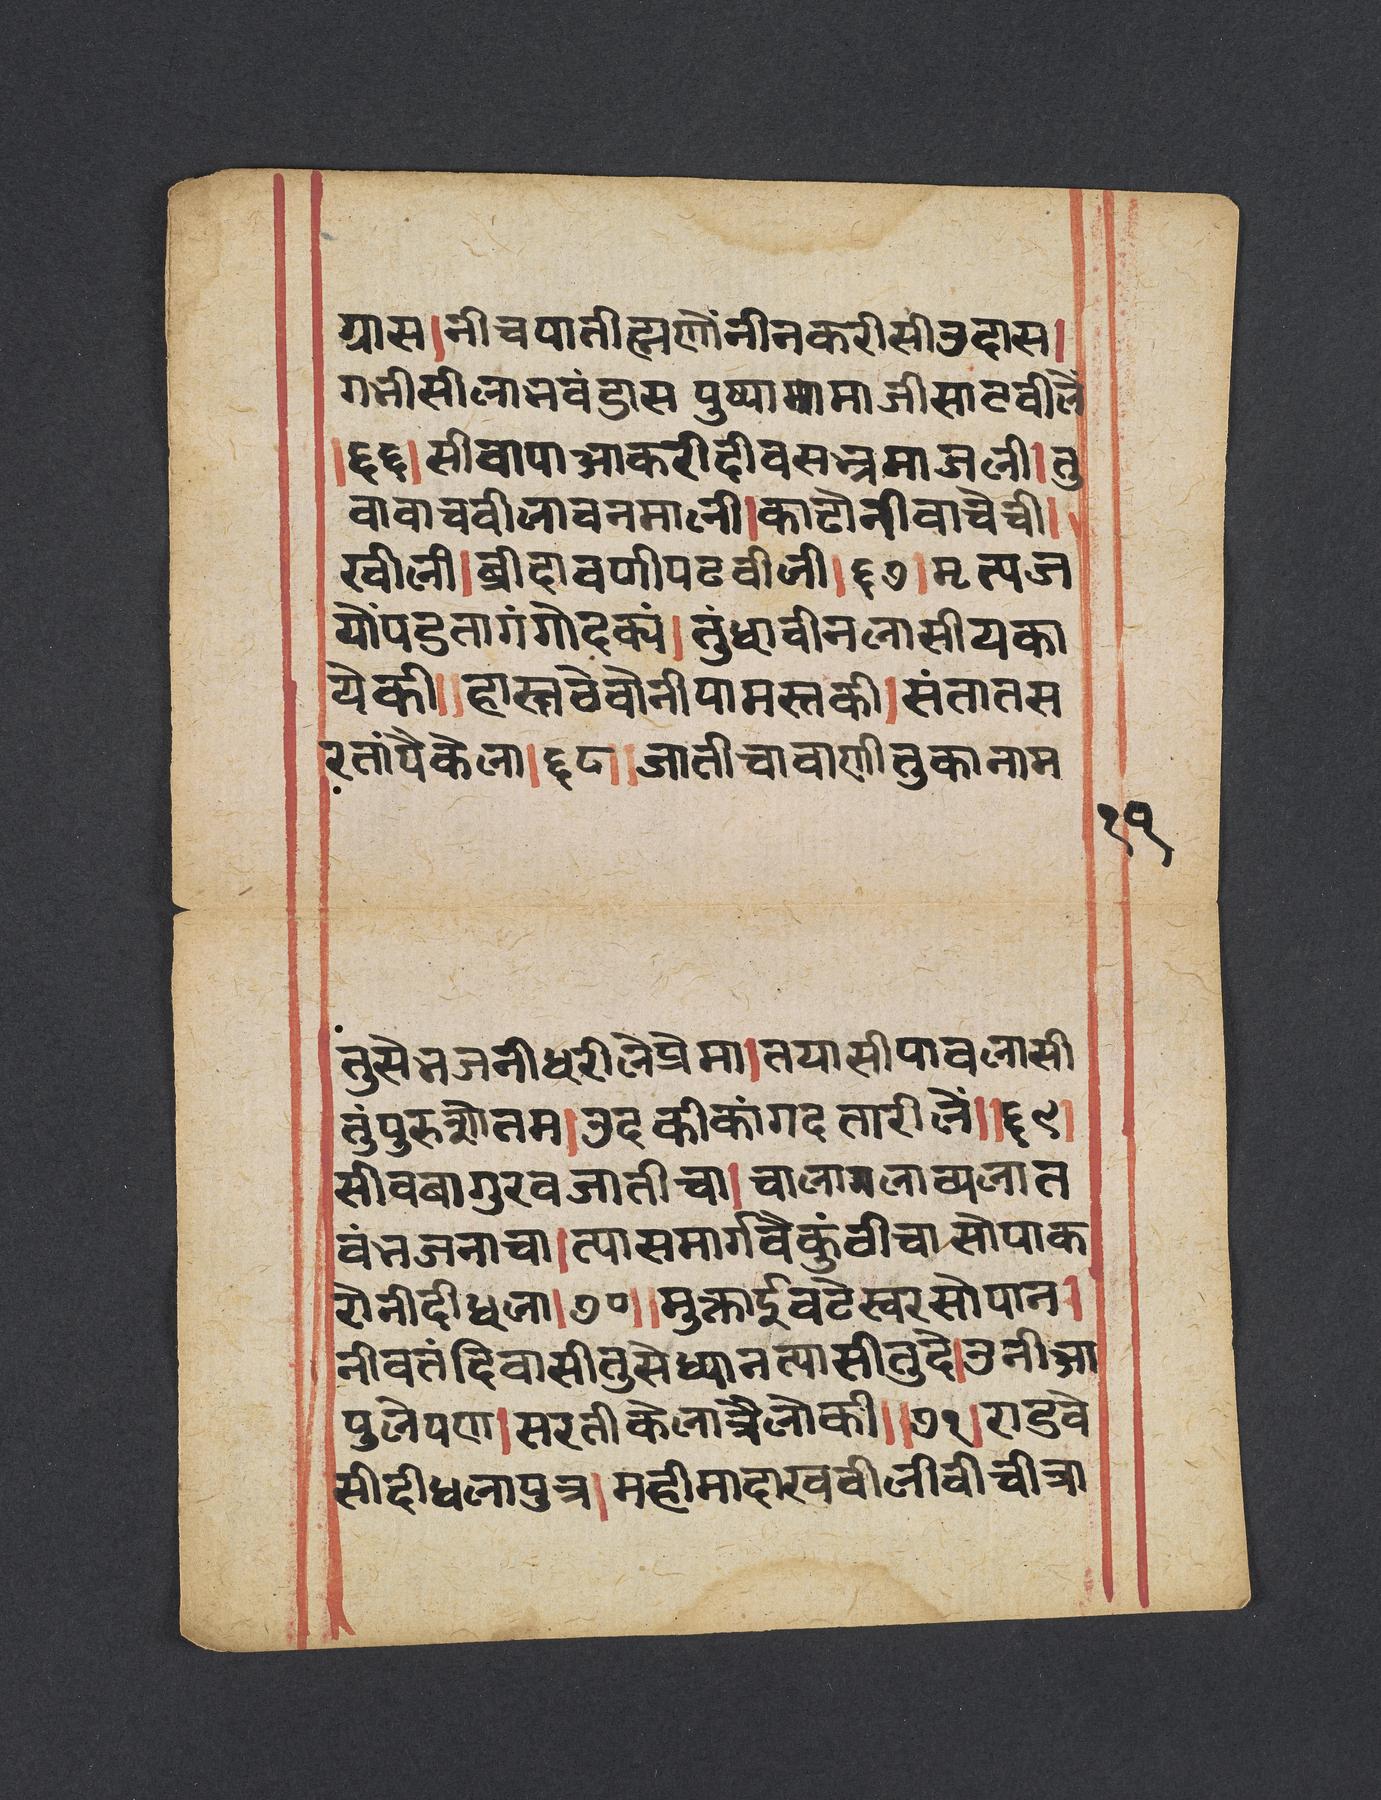 ग्रास।नीचपातीह्मणोंनीनकरीसीउदास।
गतीसीलाभवंडास पुष्पामामाजीसाटवीलें
।६६।सीवापाआकरीदीवसभ्रमाजली।तु
वावाचवीलावनमाली।काटोनीवाचैची।
रवीली।ब्रीदावणीपटवीली।६७।मृत्पज
योंपडतागंगोदक्यं।तुंधावीनलासीयका
येकी॥हास्तठेवोनीपामस्तकी।संतातस
रतांपैकेला।६८॥जातीचावाणीतुकानाम
१९
तुसेभजनीधरीलेप्रेमा।तयासीपावलासी
तुंपुरुशोतम।उदकीकांगदतारीलें॥६९।
सीवबागुरवजातीचा।चालामलाव्यलात
वंभजनाचा।त्पासमार्गवैकुंठीचासोपाक
रोनीदीधला।७०॥मुक्ताईवटेस्वरसोपान।
नीवतंदिवासीतुसेध्यानत्पासीतुदे।उनीआ
पुलेपण।सरतीकेलात्रैलोकी॥७१।राडवे
सीदीधलापुत्र।महीमादाखवीलीवीचीत्रा